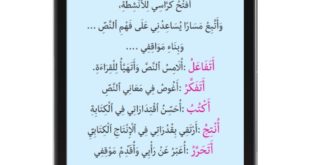 أَفْتَحُ كُرَّاسِي لِلْأَنْشِطَةِ،
وَأَتَّبِعُ مَسَارًا يُسَاعِدُنِي عَلَى فَهْمِ اَلنَّصِّ ...
وَبِنَاءِ مَوَاقِفِي ...
أَتَفَاعَلُ : أُلَامِسُ اَلنَّصَّ وَأَتَهَيَّأُ لِلْقِرَاءَةِ.
أَتَفَكَّرُ : أَغُوصُ فِي مَعَانِي اَلنَّصِّ
أَكْتُبُ : أُحَسِّنُ اِقْتِدَارَاتِي فِي اَلْكِتَابَةِ
أُنْتِجُ : أَرْتَقِي بِقُدُرَاتِي فِي اَلْإِنْتَاجِ اَلْكِتَابِيِّ
أَتَحَرَّرُ : أُعَبِّرُ عَنْ رَأْيِي وَأُقَدِّمُ مَوْقِفِي